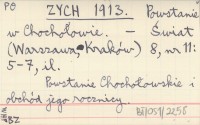 PO ZYCH 1913. Powstanie
w Chochołowie. - Świat
(Warszawa, Kraków) 8, nr 11:
5-7, il.
Powstanie Chochołowskie i
obchód jego rocznicy.
BZ